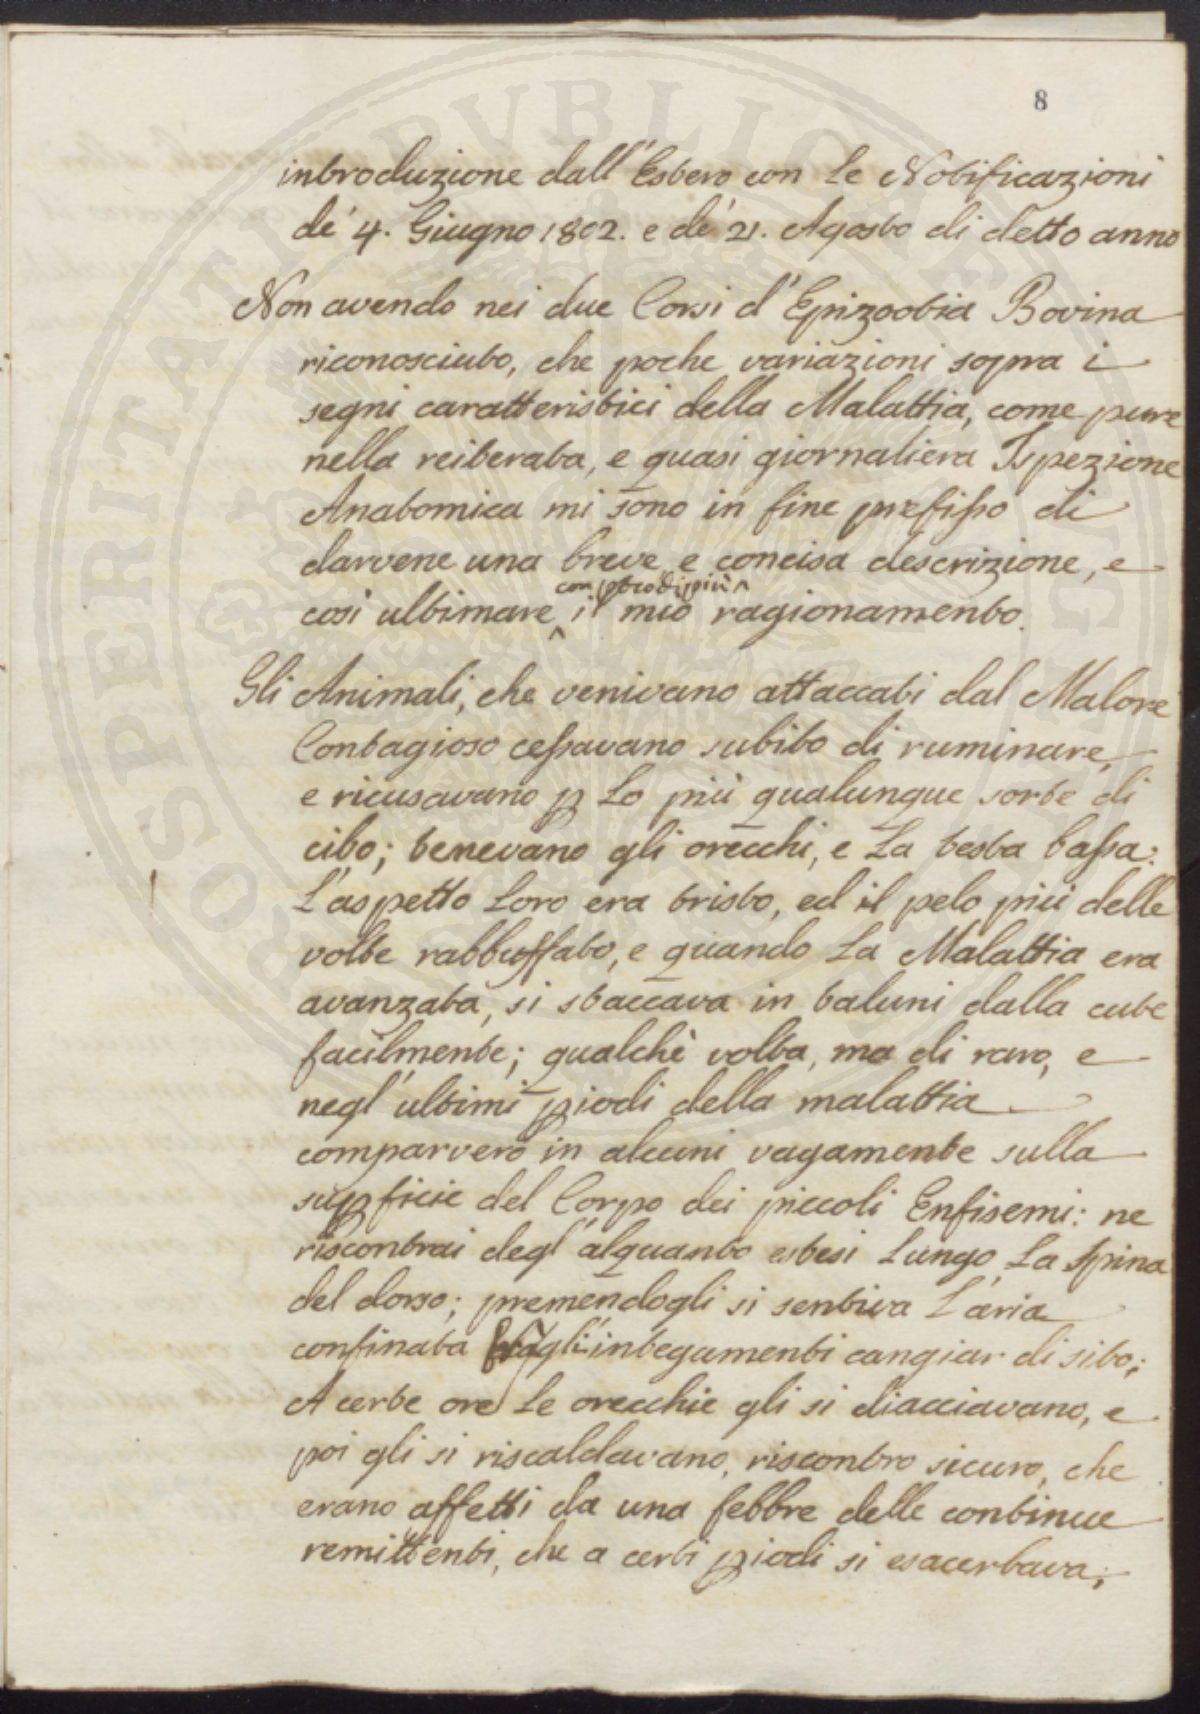 8
introduzione dall'Estero con le Notificazioni
de' 4. Giugno 1802. e de' 21. Agosto di detto anno
Non avendo nei due Corsi d'Epizootia Bovina
riconosciuto, che poche variazioni sopra i
segni caratteristici della Malattia, come pure
nella reiterata, e quasi giornaliera Ispezione
Anatomica mi sono in fine prefisso di
darvene una breve e concisa descrizione, e
così ultimare il mio ragionamento.
Gli Animali, che venivano attaccati dal Malore
Contagioso cessavano subito di ruminare,
e ricusavano p lo più qualunque sorte di
cibo; tenevano gli orecchi, e la testa bassa:
L'aspetto loro era tristo, ed il pelo più delle
volte rabbuffato, e quando la Malattia era
avanzata, si staccava in taluni dalla cute
facilmente; qualchè volta, ma di raro, e
negl'ultimi piodi della malattia
comparvero in alcuni vagamente sulla
supficie del Corpo dei piccoli Enfisemi: ne
riscontrai degl'alquanto estesi lungo la spina
del dorso; premendogli si sentiva l'aria
confinata fragl'integumenti cangiar di sito;
A certe ore le orecchie gli si diacciavano, e
poi gli si riscaldavano, riscontro sicuro, che
erano affetti da una febbre delle continue
remittenti, che a certi piodi si esacerbava;
SOSPERITATI PVBLICAE AVGENDAE